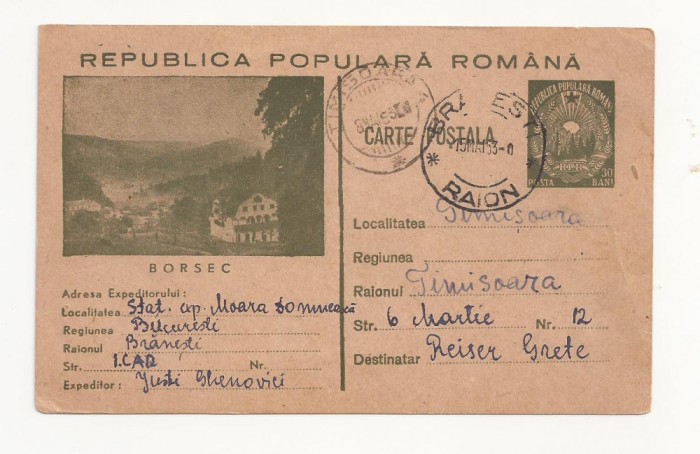 REPUBLICA POPULARĂ ROMÂNĂ
TIMIȘOARA
BRĂNEȘTI
15 MAI 53
RAION
REPUBLICA POPULARA ROMANA
RPR
30
POSTA BANI
CARTE POSTALA
BORSEC
Adresa Expeditorului:
Localitatea Stat. ap. Moara Domnească
Regiunea București
Raionul Brănești
Str. I.CAR Nr.
Expeditor: Justi Ghenovici
Localitatea Timișoara
Regiunea
Raionul Timisoara
Str. 6 Martie Nr. 12
Destinatar Reiser Grete